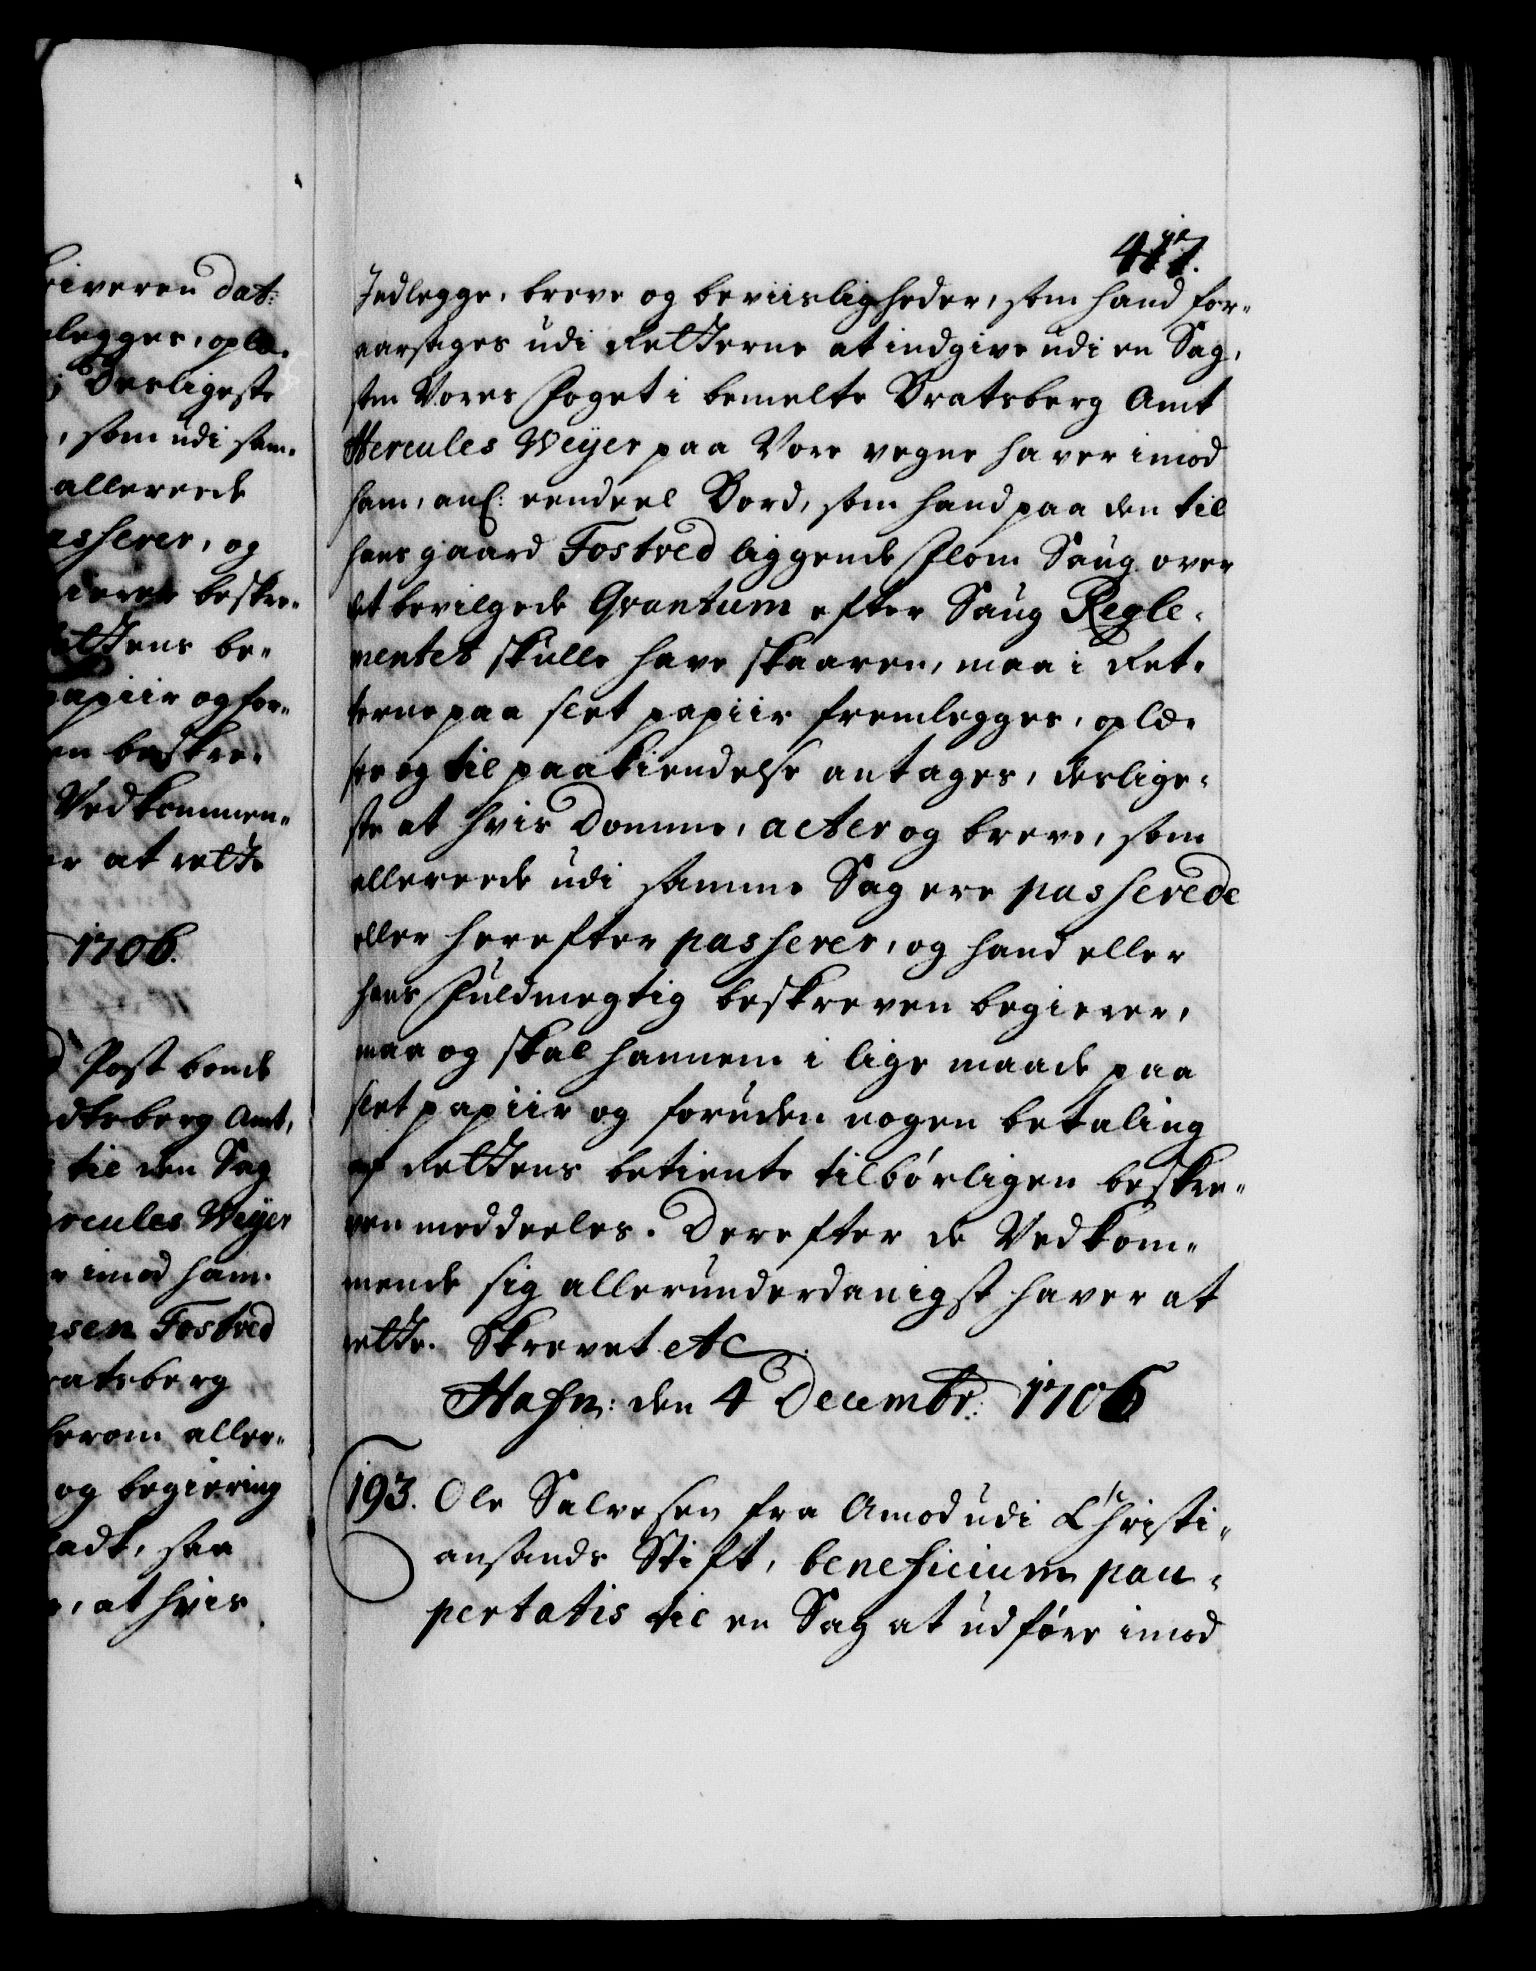 iveren Dat:
legges, oplæ-
Desligeste
, som udi sam-
allereede
asserer, og
beskre-
ettens be-
apiir og for-
en beskre-
Vedkommen-
er at rette
1706.
Post bonde
Amt,
til den Sag
rcules Weyer
imod ham.
sen Fostved
ratsberg
herom aller-
og begiering
ladt, saa
, at hvis
417.
Indlegge, breve og beviisligheder, som hand for-
aarsages udi Retterne at indgive udi en Sag,
som Vores Foget i bemelte Bratsberg Amt
Hercules Weyer paa Vore vegne haver imod
ham, anl: eendeel Bord, som hand paa den til
hans gaard Fostved liggende Flom Saug over
det bevilgede Qvantum efter Saug Regle-
mentet skulle have skaaren, maa i Ret-
terne paa slet papiir fremlegges, oplæ-
ses og til paakiendelse antages, deslige-
ste at hvis Domme, acter og breve, som
allereede udi samme Sag ere passerede
eller herefter passerer, og hand eller
hans Fuldmegtig beskreven begierer,
maa og skal hannem i lige maade paa
slet papiir og foruden nogen betaling
af Rettens betiente tilbørligen beskre-
ven meddeeles. Derefter de Vedkom-
mende sig allerunderdanigst haver at
rette. Skrevet etc.
Hafn: den 4 Decembr: 1706
193. Ole Salvesen fra Amod udi Christi-
ansands Stift, beneficium pau-
pertatis til en Sag at udføre imod